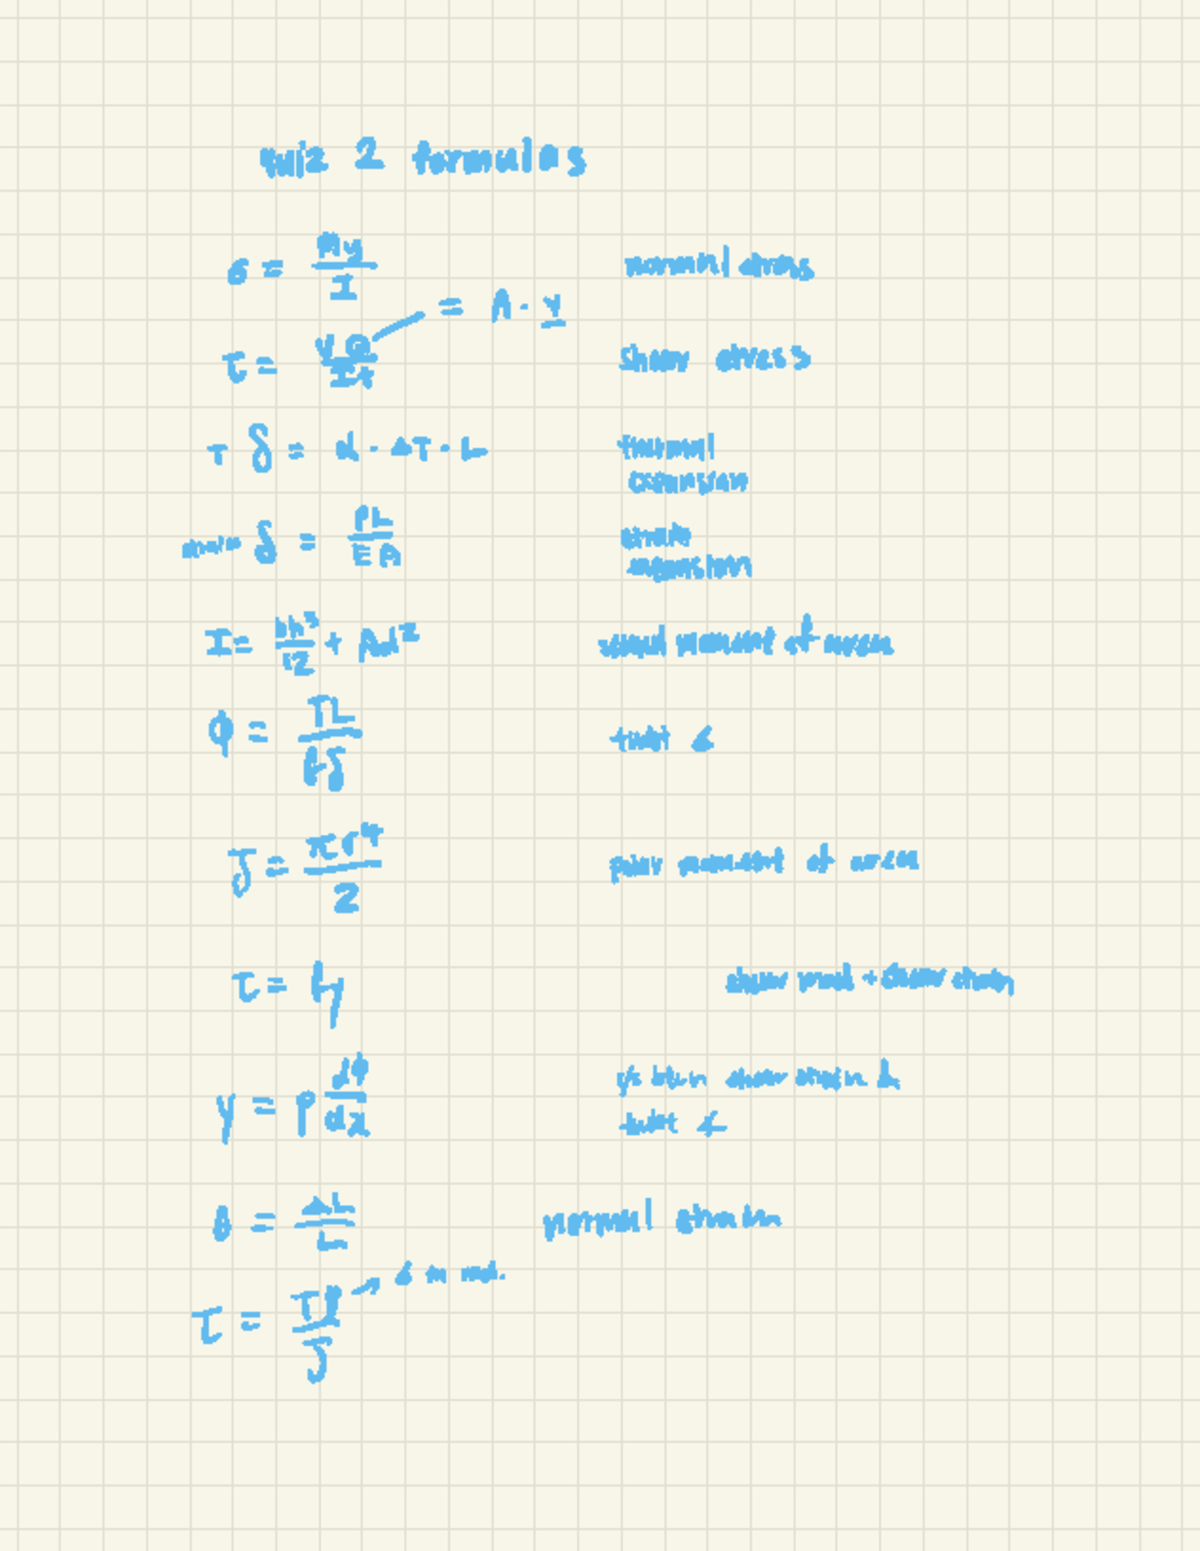 quiz 2 formulas
σ = My/I normal stress
= A · y
τ = VQ/It shear stress
T δ = α · ΔT · L thermal
expansion
strain δ = PL/EA strain
expansion
I = bh³/12 + Ad² second moment of area
φ = TL/GJ twist ∠
J = πr⁴/2 polar moment of area
τ = Gγ shear mod + shear strain
γ = ρ dφ/dx b/wn shear strain &
twist ∠
= ΔL/L normal strain
τ = Tρ/J →